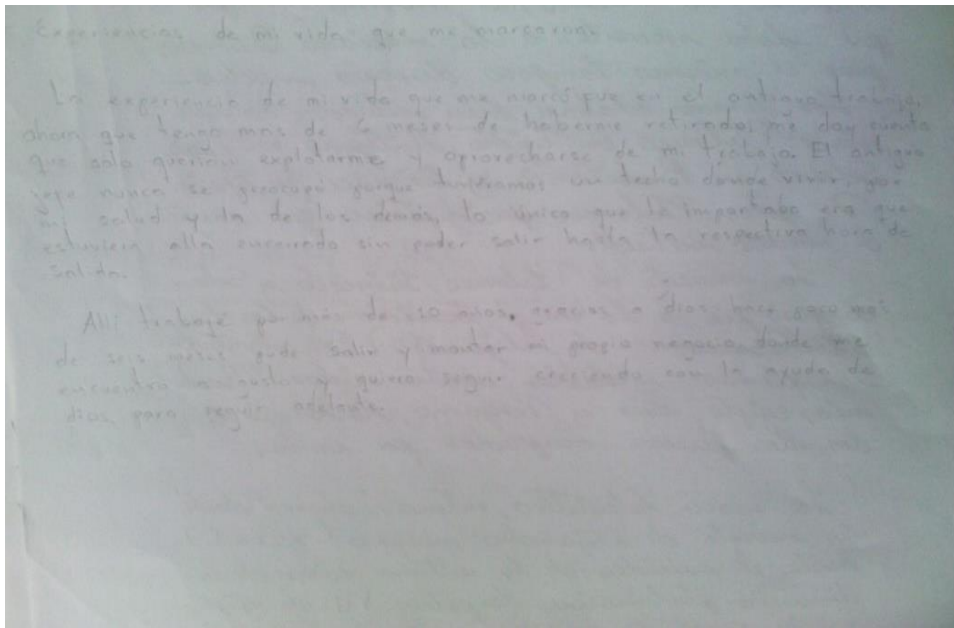 Experiencias de mi vida que me marcaron.
La experiencia de mi vida que me marcó fue en el antiguo trabajo,
ahora que tengo mas de 6 meses de haberme retirado, me doy cuenta
que solo querian explotarme y aprovecharse de mi trabajo. El antiguo
jefe nunca se preocupó porque tuvieramos un techo donde vivir, por
mi salud y la de los demás, lo único que le importaba era que
estuviera alla encerrado sin poder salir hasta la respectiva hora de
salida.
Allí trabajé por más de 10 años, gracias a dios hace poco mas
de seis meses pude salir y montar mi propio negocio donde me
encuentro a gusto y quiero seguir creciendo con la ayuda de
dios para seguir adelante.